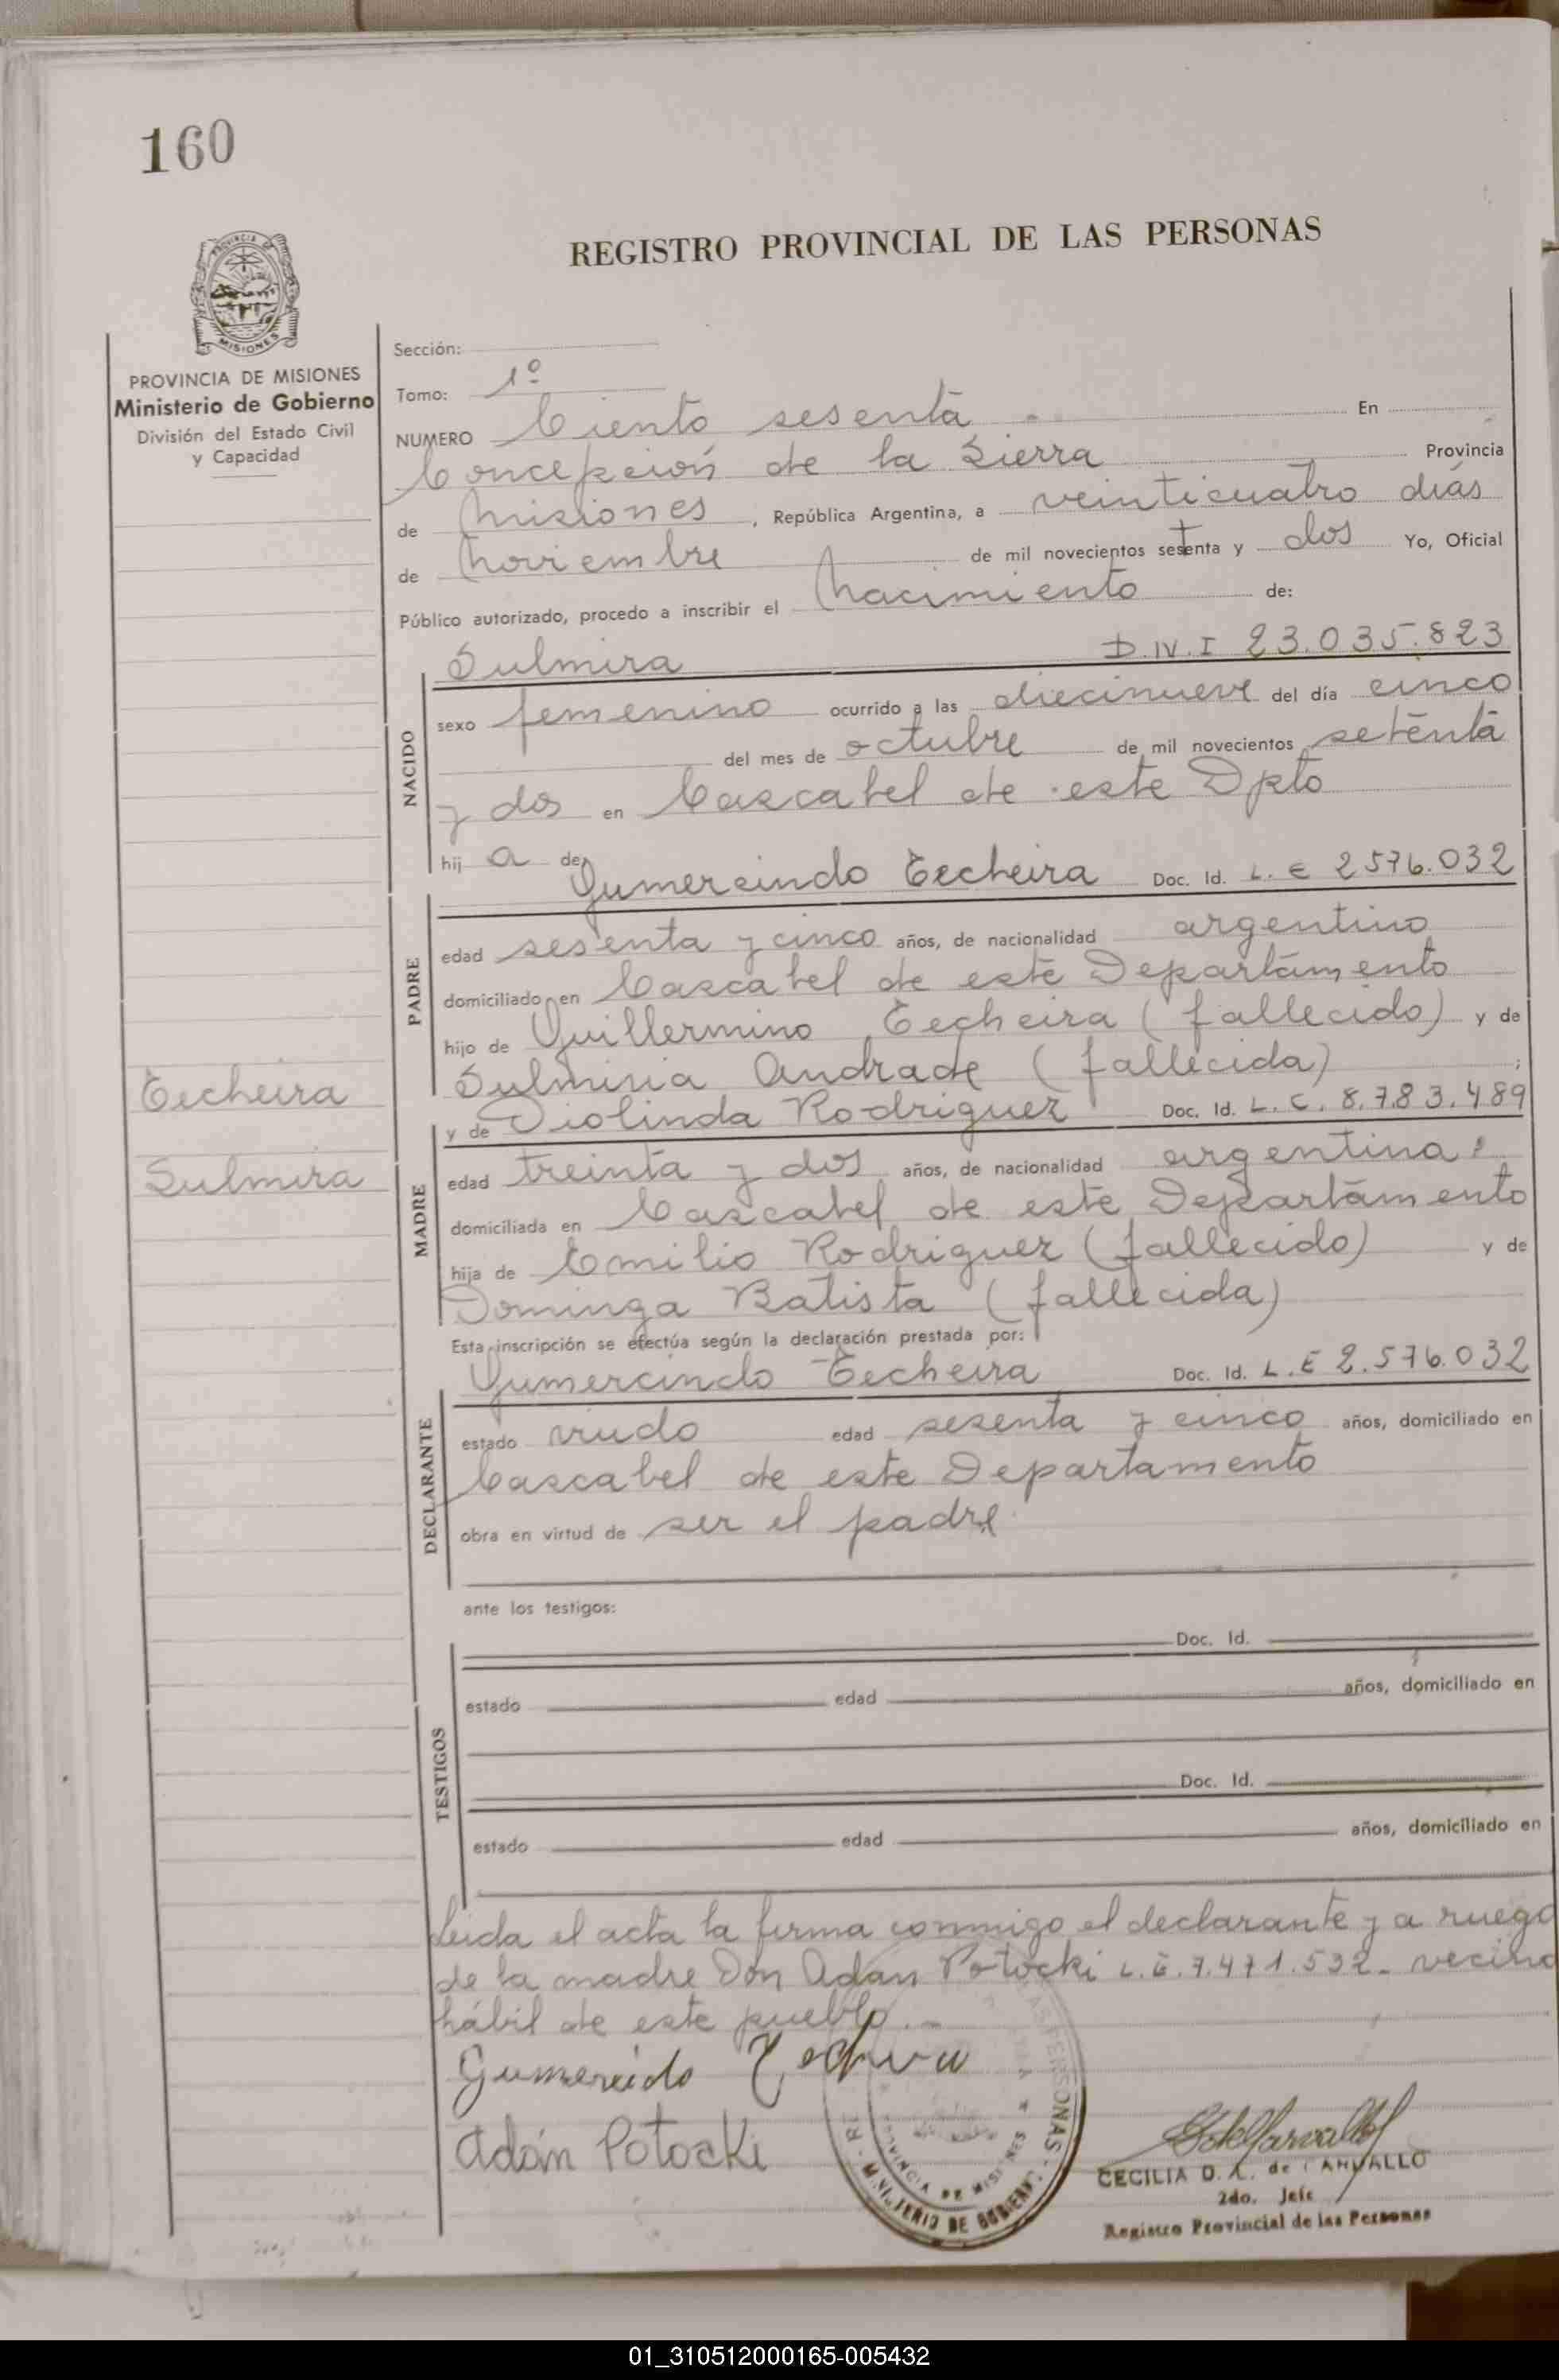 160
REGISTRO PROVINCIAL DE LAS PERSONAS
PROVINCIA DE MISIONES
Ministerio de Gobierno
División del Estado Civil
y Capacidad
Sección:
Tomo: 1º
NUMERO Ciento sesenta - En
Concepción de la Sierra Provincia
de Misiones, República Argentina, a veinticuatro días
de Noviembre de mil novecientos setenta y dos Yo, Oficial
Público autorizado, procedo a inscribir el Nacimiento de:
Sulmira D.N.I 23.035.823
NACIDO
sexo femenino ocurrido a las diecinueve del día cinco
del mes de octubre de mil novecientos setenta
y dos en Cascabel de este Dpto
hij a de Gumercindo Techeira Doc. Id. L. E 2576.032
PADRE
edad sesenta y cinco años, de nacionalidad argentino
domiciliado en Cascabel de este Departamento
hijo de Guillermino Techeira (fallecido) y de
Sulmiria Andrade (fallecida) ;
Techeira
Sulmira
y de Diolinda Rodriguez Doc. Id. L. C. 8.783.489
MADRE
edad treinta y dos años, de nacionalidad argentina
domiciliada en Cascabel de este Departamento
hija de Emilio Rodriguez (fallecido) y de
Dominga Batista (fallecida)
Esta inscripción se efectúa según la declaración prestada por:
Gumercindo Techeira Doc. Id. L. E 2.576.032
DECLARANTE
estado viudo edad sesenta y cinco años, domiciliado en
Cascabel de este Departamento
obra en virtud de ser el padre
ante los testigos:
TESTIGOS
Doc. Id.
estado edad años, domiciliado en
Doc. Id.
estado edad años, domiciliado en
Leida el acta la firma conmigo el declarante y a ruego
de la madre Don Adan Potocki L.E. 7.471.532- vecino
hábil de este pueblo.-
Gumercido Techeira
Adán Potocki
MINISTERIO DE GOBIERNO
PROVINCIA DE MISIONES
CECILIA D. A. de CARVALLO
2do. Jefe
Registro Provincial de las Personas
01_310512000165-005432